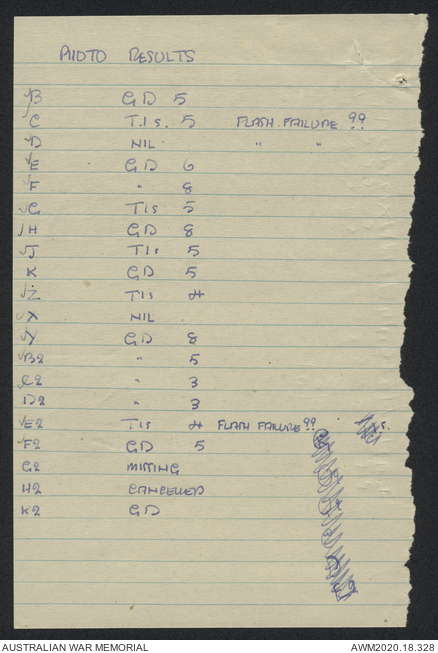 PHOTO RESULTS
✓B GD 5
✓C T.I.s. 5 FLASH FAILURE ??
✓D NIL " "
✓E GD 6
✓F " 8
✓G TIs 5
✓H GD 8
✓J TIs 5
K GD 5
✓Z TIs 4
✓X NIL
✓Y GD 8
✓B2 " 5
✓C2 " 3
D2 " 3
✓E2 TIs 4 FLASH FAILURE ??
✓F2 GD 5
G2 MISSING
H2 CANCELLED
K2 GD
AUSTRALIAN WAR MEMORIAL AWM2020.18.328